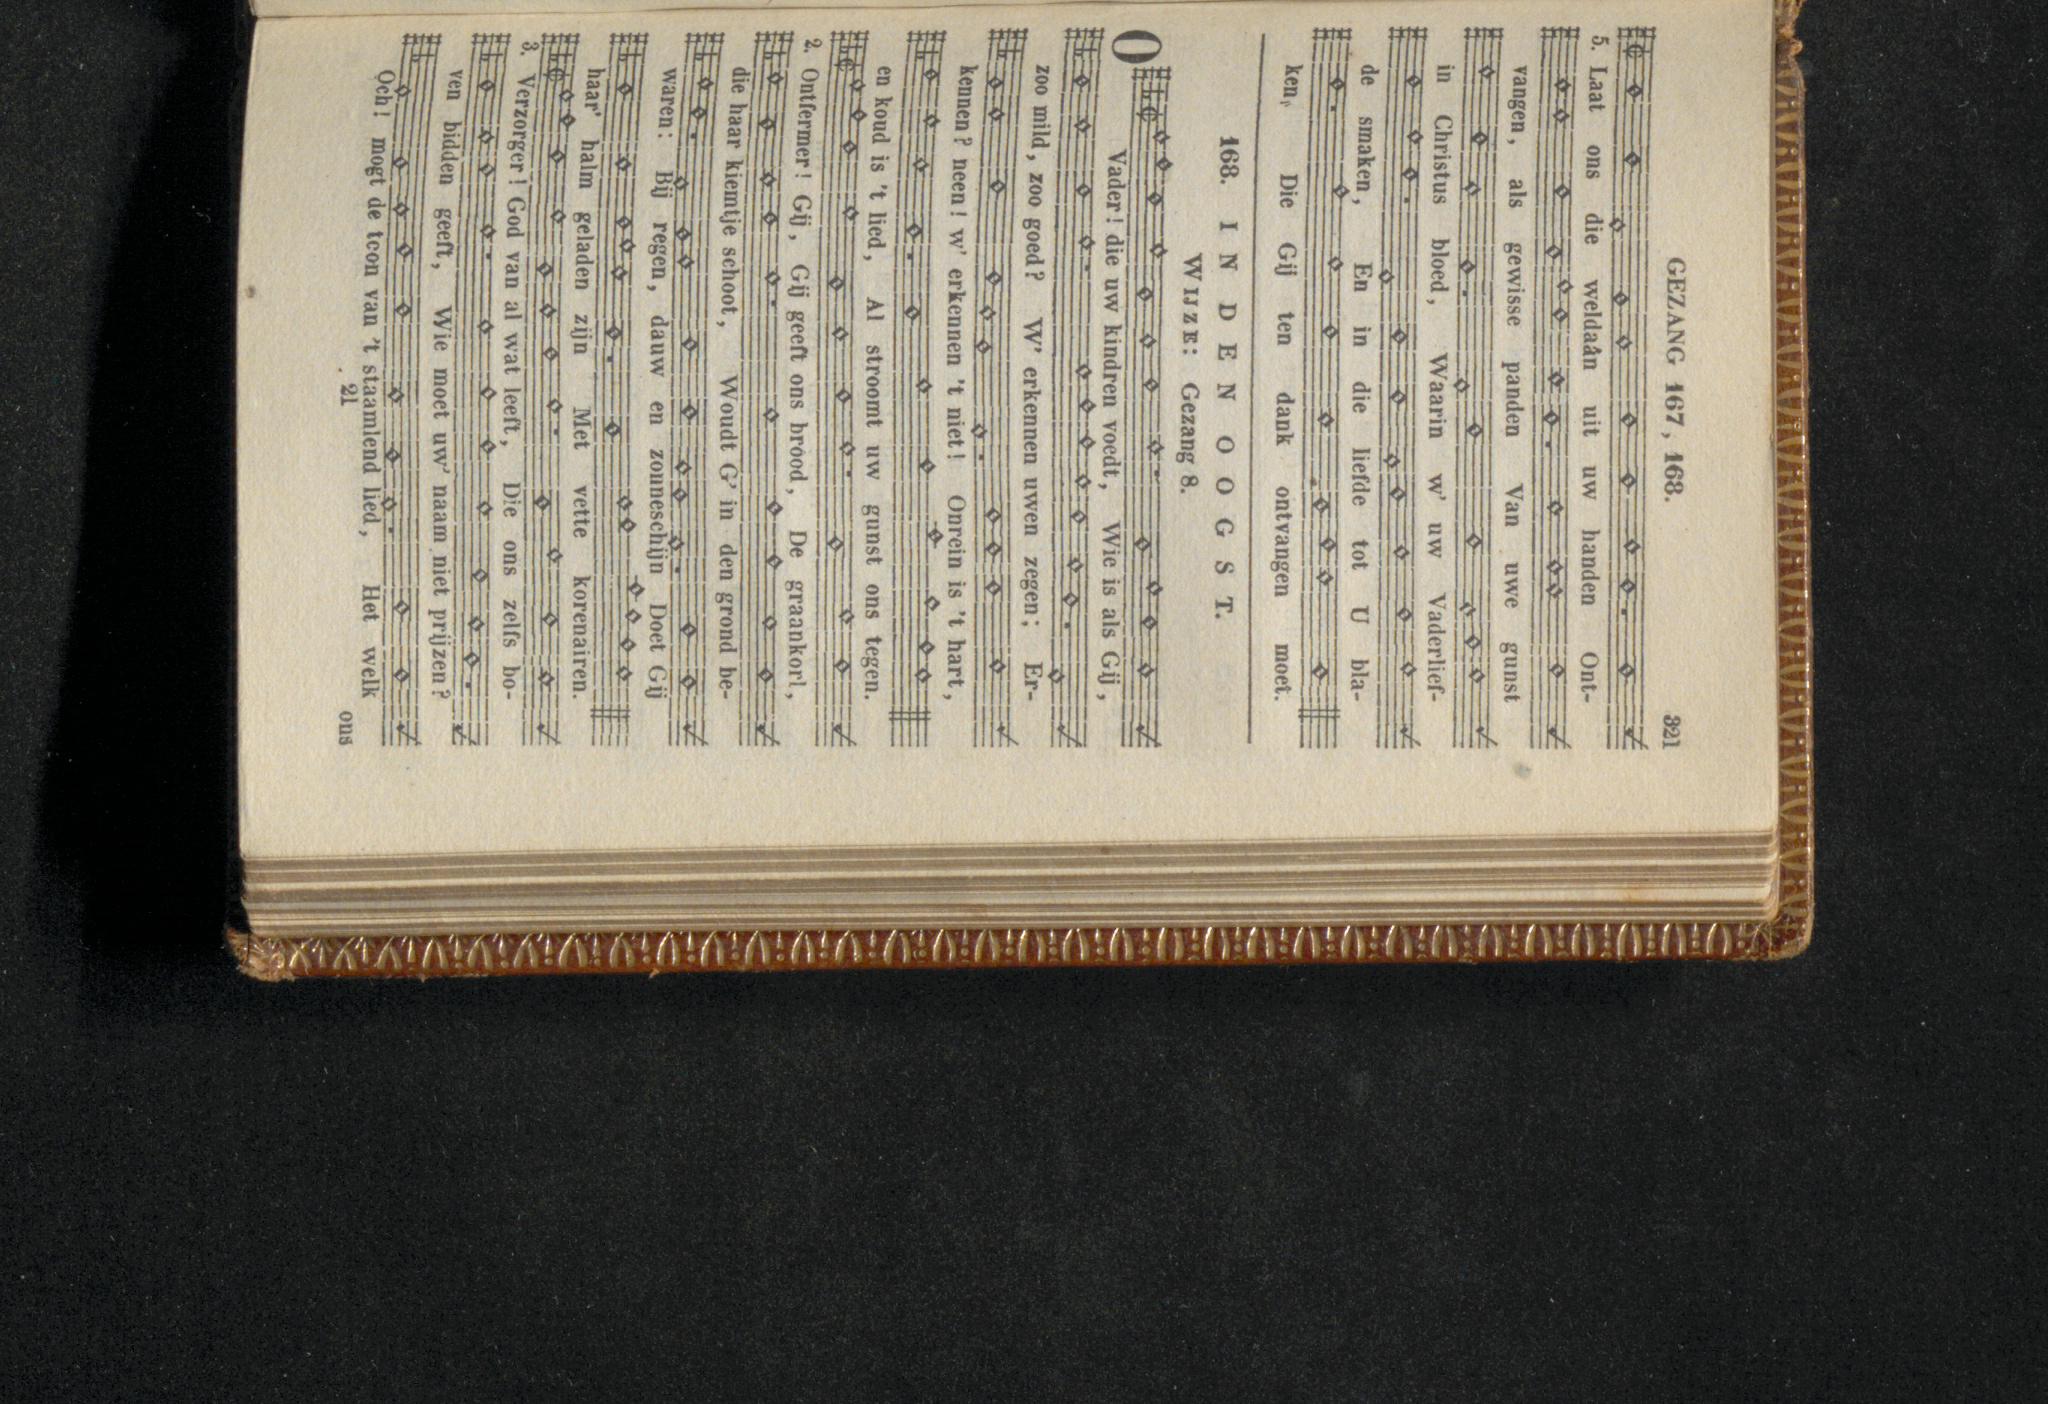 GEZANG 167, 168. 321
5. Laat ons die weldaân uit uw handen Ont-
vangen, als gewisse panden Van uwe gunst
in Christus bloed, Waarin w' uw Vaderlief-
de smaken, En in die liefde tot U bla-
ken, Die Gij ten dank ontvangen moet.
168. IN DEN OOGST.
WIJZE: Gezang 8.
O Vader! die uw kindren voedt, Wie is als Gij,
zoo mild, zoo goed? W' erkennen uwen zegen; Er-
kennen? neen! w' erkennen 't niet! Onrein is 't hart,
en koud is 't lied, Al stroomt uw gunst ons tegen.
2. Ontfermer! Gij, Gij geeft ons brood, De graankorl,
die haar kiemtje schoot, Woudt G' in den grond be-
waren: Bij regen, dauw en zonneschijn Doet Gij
haar' halm geladen zijn Met vette korenairen.
3. Verzorger! God van al wat leeft, Die ons zelfs bo-
ven bidden geeft, Wie moet uw' naam niet prijzen?
Och! mogt de toon van 't staamlend lied, Het welk
21 ons